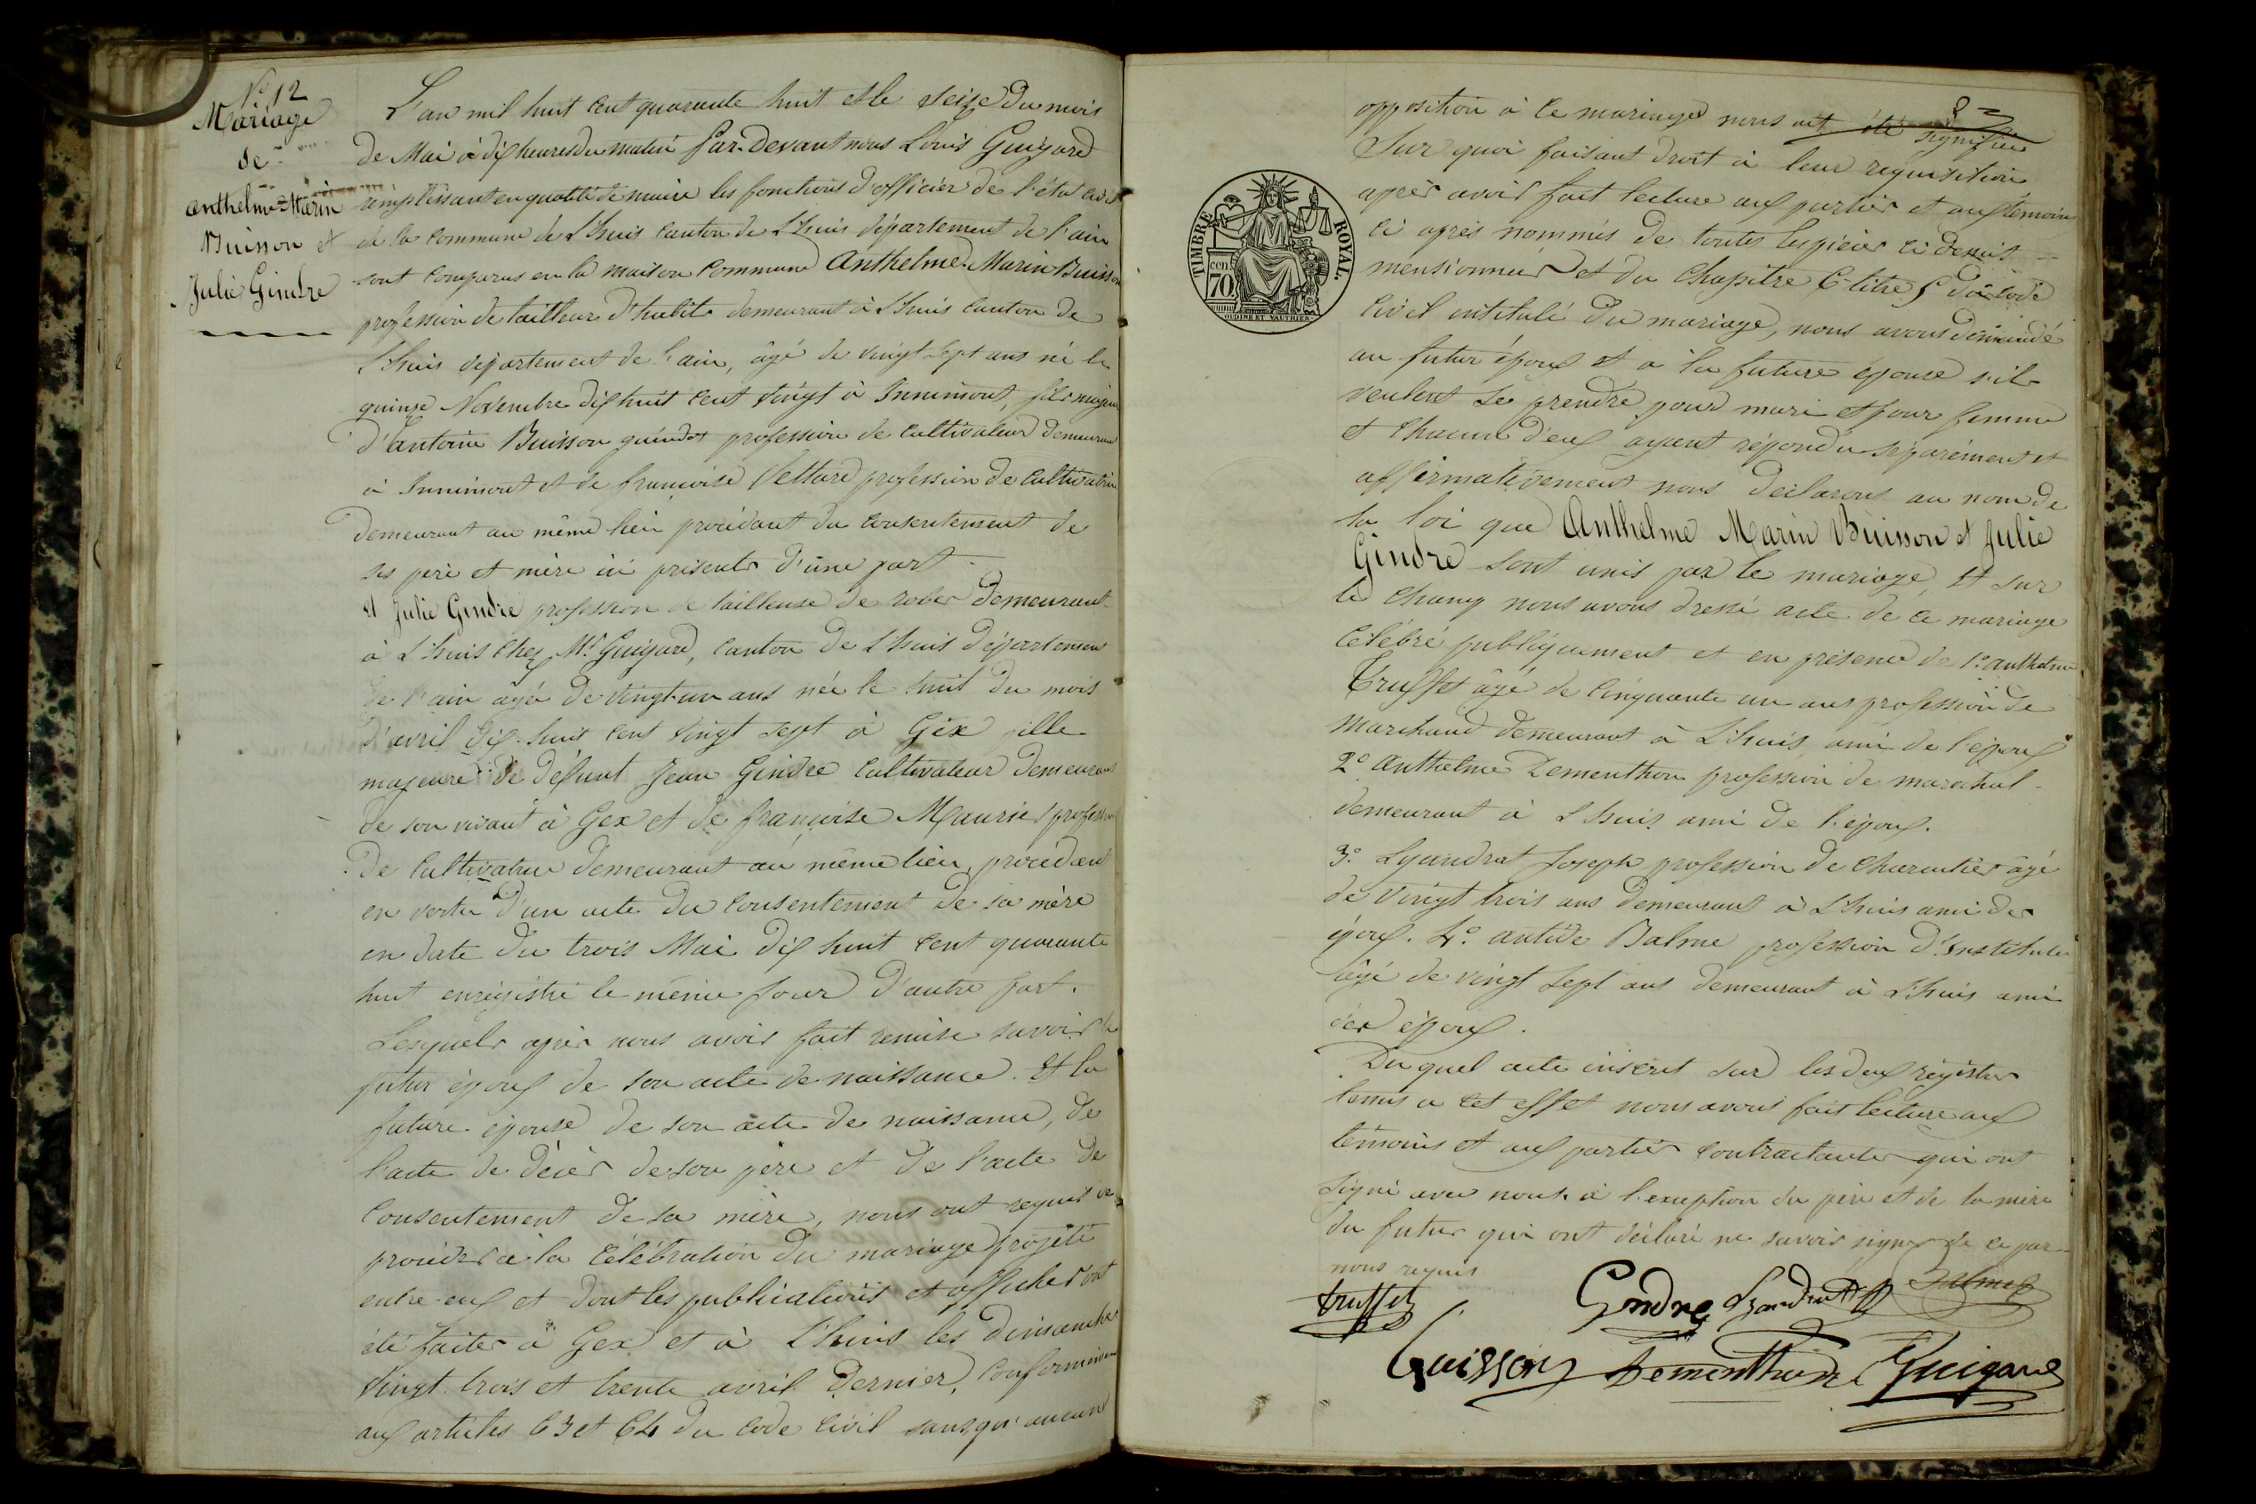 N° 12
Mariage
de
Anthelme Marin
Buisson et
Julie Gindre
L'an mil huit cent quarante huit et le seize du mois
de Mai à dix heures du matin Par-Devant nous Louis Guigard
remplissant en qualité de maire les fonctions d'officier de l'état civil
de la commune de L'huis canton de L'huis département de l'ain
sont comparus en la maison commune Anthelme Marin Buisson
profession de tailleur d'habits demeurant à L'huis canton de
L'huis département de l'ain, âgé de vingt sept ans né le
quinze Novembre dix huit cent vingt à Innimont, fils majeur
d'Antoine Buisson profession de cultivateur demeurant
à Innimont et de françoise profession de cultivatrice
demeurant au même lieu procédant du consentement de
ses père et mère ici présents d'une part.
et Julie Gindre profession de tailleuse de robes demeurant
à L'huis chez Mr Guigard, canton de L'huis département
de l'ain âgé de vingt un ans née le huit du mois
d'avril dix-huit cent vingt sept à Gex fille
majeure de défunt Jean Gindre cultivateur demeurant
de son vivant à Gex et de françoise Maurier profession
de cultivatrice demeurant au même lieu, procédant
en vertu d'un acte du consentement de sa mère
en date du trois Mai dix huit cent quarante
huit enregistré le même jour d'autre part.
Lesquels après nous avoir fait remise savoir le
futur époux de son acte de naissance. Et la
future épouse de son acte de naissance, de
l'acte de décès de son père et de l'acte de
consentement de sa mère, nous ont requis de
procéder à la célébration du mariage projeté
entre eux et dont les publications et affiches ont
été faites à Gex et à L'huis les dimanches
vingt trois et trente avril dernier, conformément
aux articles 63 et 64 du code civil sans qu'aucune
opposition à ce mariage nous ait été signifiée
Sur quoi faisant droit à leur requisition
après avoir fait lecture aux parties et aux témoins
ci après nommés de toutes les pièces ci dessus
mensionnées et du Chapitre 6 titre 5 du code
civil intitulé du mariage, nous avons demandé
au futur époux et à la future épouse s'ils
veulent se prendre pour mari et pour femme
et chacun d'eux ayant répondu séparément et
affirmativement nous déclarons au nom de
la loi que Anthelme Marin Buisson et Julie
Gindre sont unis par le mariage, Et sur
le champ nous avons dressé acte de ce mariage
célébré publiquement et en présence de 1° anthelme
Truffet âgé de cinquante un ans profession de
marchand demeurant à L'huis ami de l'époux
2° Anthelme Dementhon profession de marechal
demeurant à L'huis ami de l'époux.
3° Lyandrat Joseph profession de charcutier âgé
de vingt trois ans demeurant à L'huis ami des
époux. 4° antide Balme profession d'Instituteur
âgé de vingt sept ans demeurant à L'huis ami
des époux.
Du quel acte inscrit sur les deux registres
tenus à cet effet nous avons fait lecture aux
témoins et aux parties contractantes qui ont
signé avec nous à l'exception du père et de la mère
du futur qui ont déclaré ne savoir signer de ce par
nous requis
truffet Gindre Lyandrat Balme
Buisson Dementhon Guigard
TIMBRE ROYAL.
70 cen.
OUDINÉ ET VAUTHIER